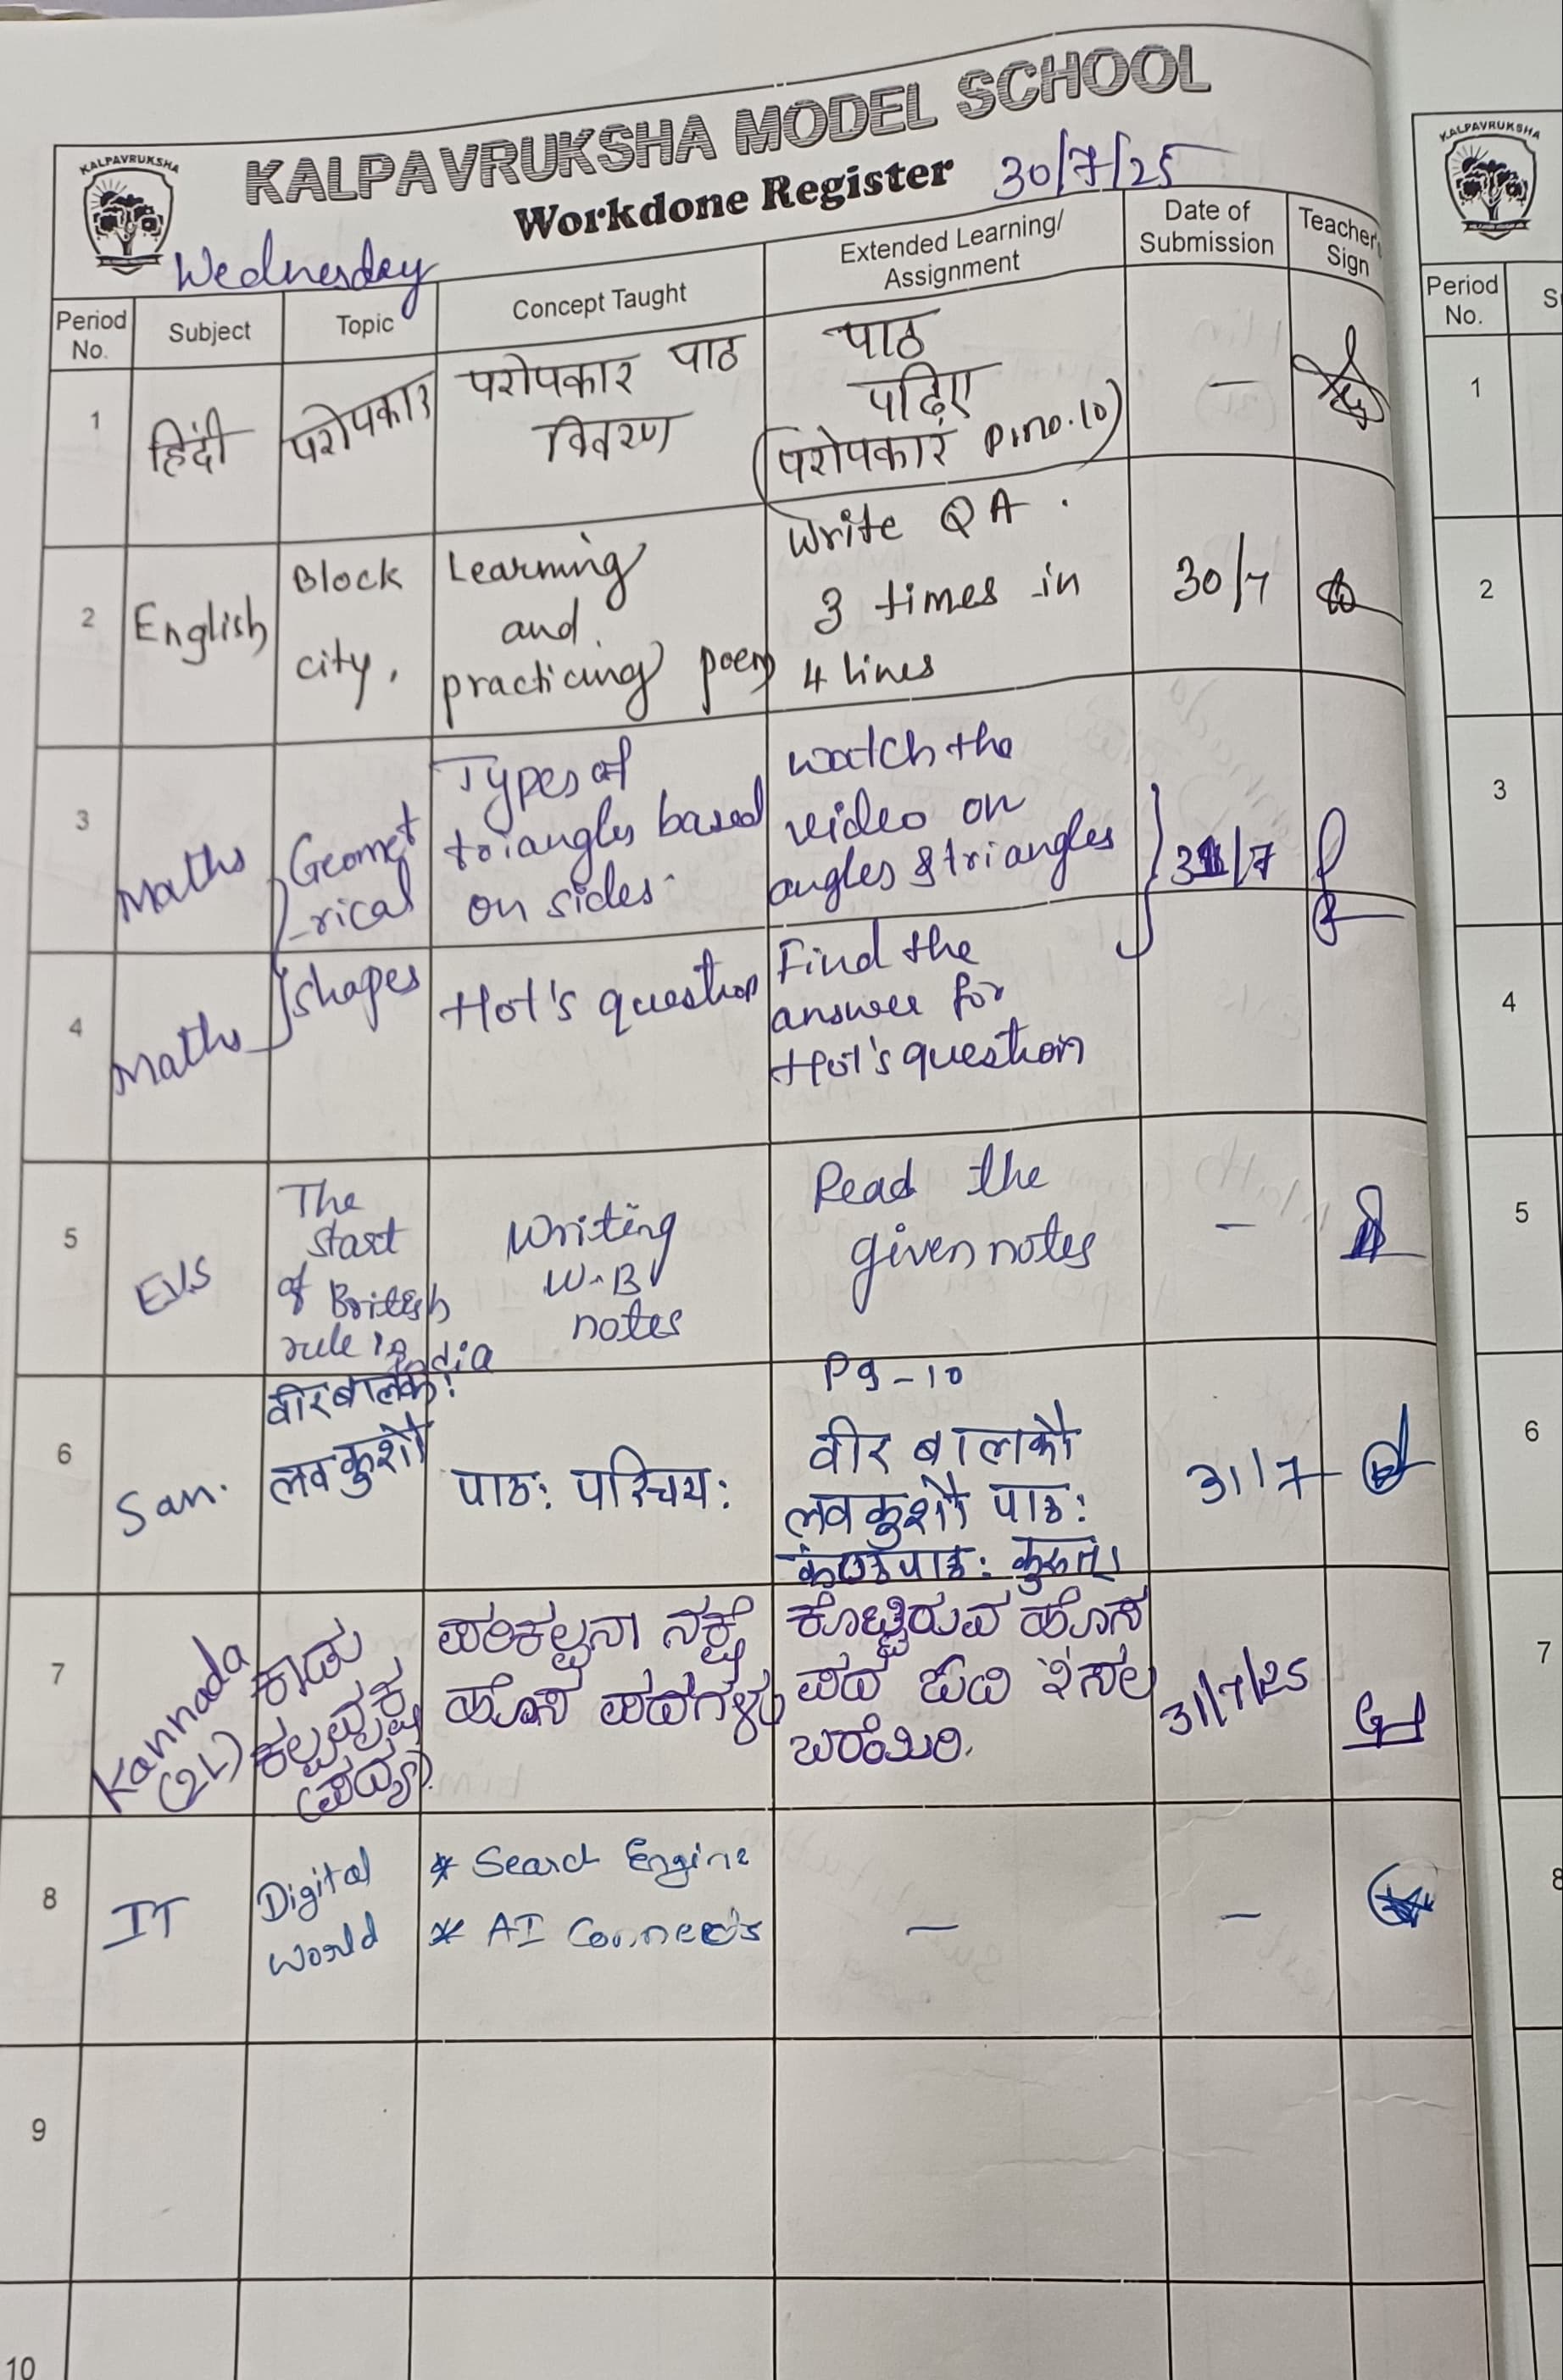 KALPAVRUKSHA MODEL SCHOOL
KALPAVRUKSHA
Workdone Register 30/7/25
Wednesday
Period No. Subject Topic Concept Taught Extended Learning/ Assignment Date of Submission Teacher's Sign
1 हिंदी परोपकार परोपकार पाठ
विवरण
पाठ
पढ़िए
(परोपकार p.no.10)
—
2 English Block
city,
Learning
and
practicing poem
Write QA
3 times in
4 lines
30/7
3 Maths Geomet
-rical
Types of
triangles based
on sides.
watch the
video on
angles & triangles
31/7
4 Maths shapes
Hot's question
Find the
answer for
Hot's question
5 EVS The
start
of British
rule in
India
Writing
W-B
notes
Read the
given notes
—
6 San. वीरबालकौ
लवकुशौ
पाठः परिचयः
Pg-10
वीर बालकौ
लवकुशौ पाठः
कंठपाठः कुरुत।
31/7
7 Kannada
(2L)
ಕಾಡು
ಕಲ್ಪವೃಕ್ಷ
(ಪದ್ಯ).
ಪರಿಕಲ್ಪನಾ ನಕ್ಷೆ
ಹೊಸ ಪದಗಳು
ಕೊಟ್ಟಿರುವ ಹೊಸ
ಪದ ಓದಿ ೩ ಸಲ
ಬರೆಯಿರಿ.
31/7/25
8 IT Digital
World
* Search Engine
* AI Connects
—
—
9
10
KALPAVRUKSHA
Period No. S
1
2
3
4
5
6
7
8